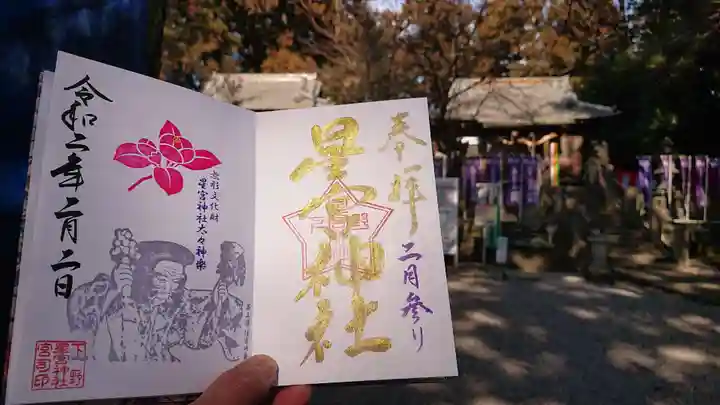 奉拝
星宮神社
二月参り
令和二年二月二日
無形文化財
星宮神社太々神楽
下野
星宮神社
宮司印